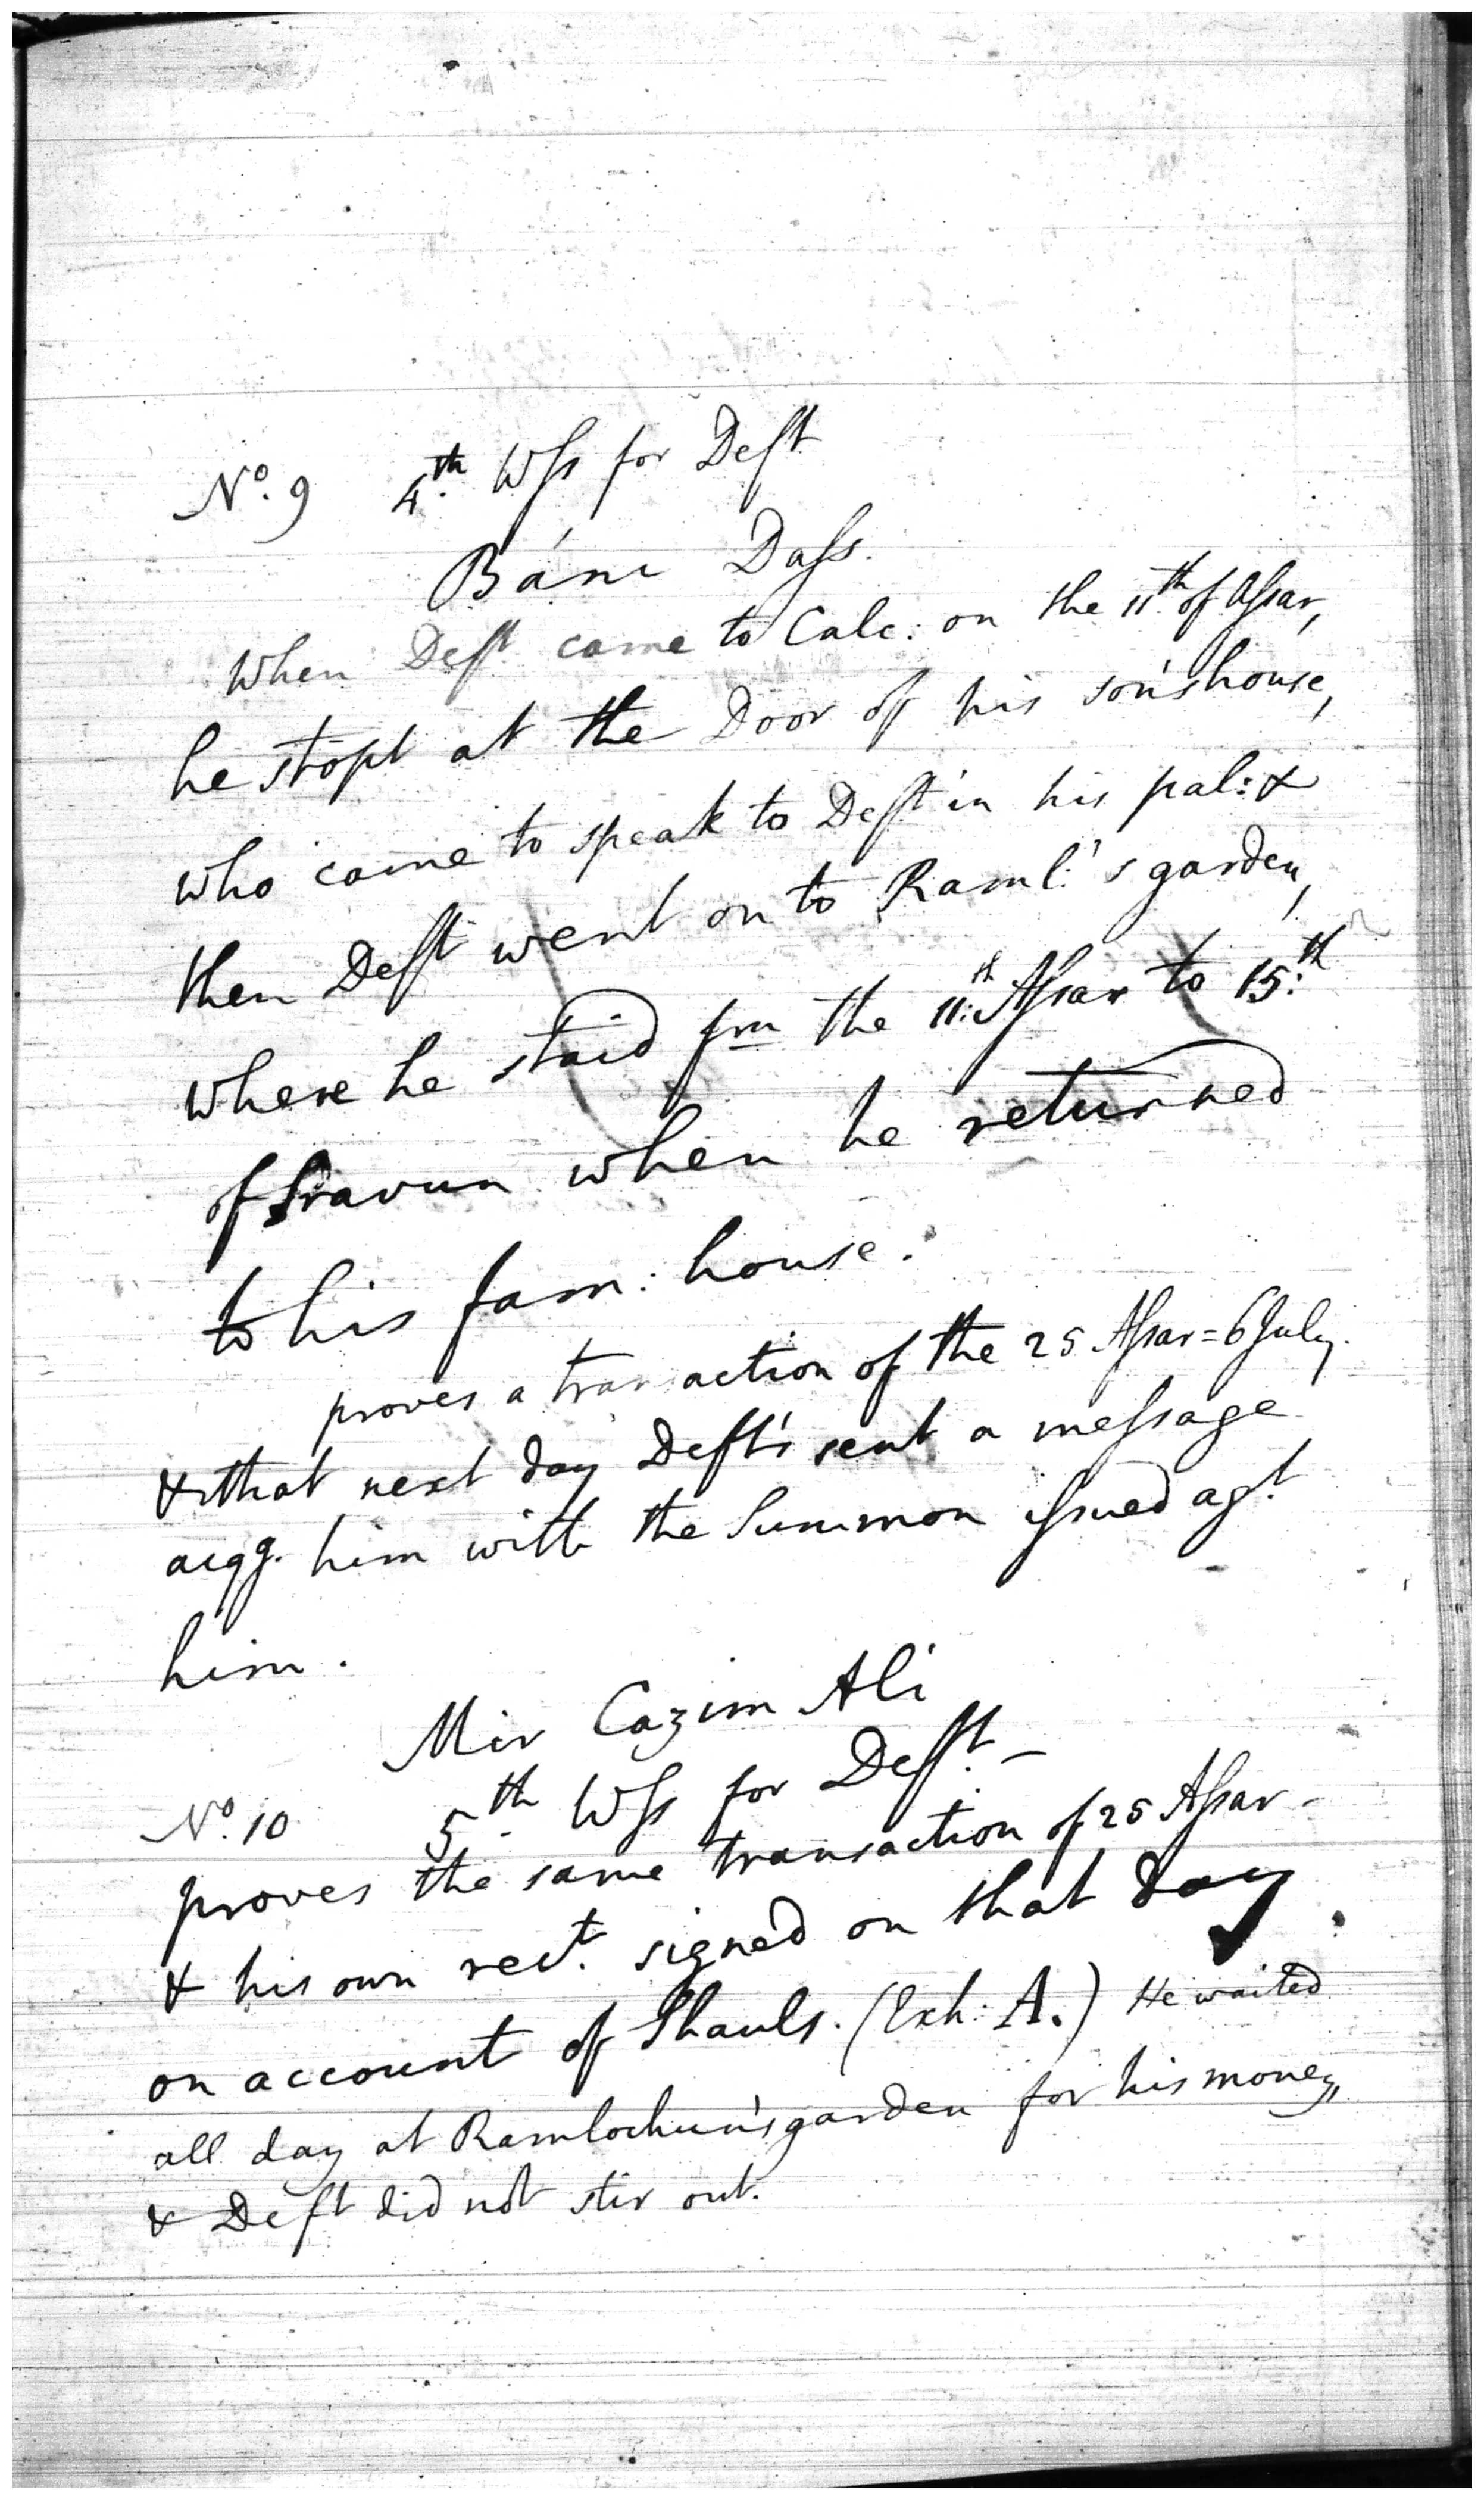 No. 9 4th. Wss for Deft
Báni Dass.
When Deft came to Calc: on the 11th of Assar,
he stopt at the Door of his son's house,
who came to speak to Deft in his pal: &
then Deft went on to Raml:'s garden,
where he staid frm the 11:th Assar to 15:th
of Sravun when he returned
to his fam: house.
proves a transaction of the 25 Assar = 6 July.
& that next day Deft's sent a message
acqg. him with the Summon issued agt.
him.
Mir Cazim Ali
No. 10 5th. Wss for Deft. —
proves the same transaction of 25 Assar -
& his own rect. signed on that day
on account of Shauls. (Exh: A.) He waited
all day at Ramlochun's garden for his money,
& Deft did not stir out.